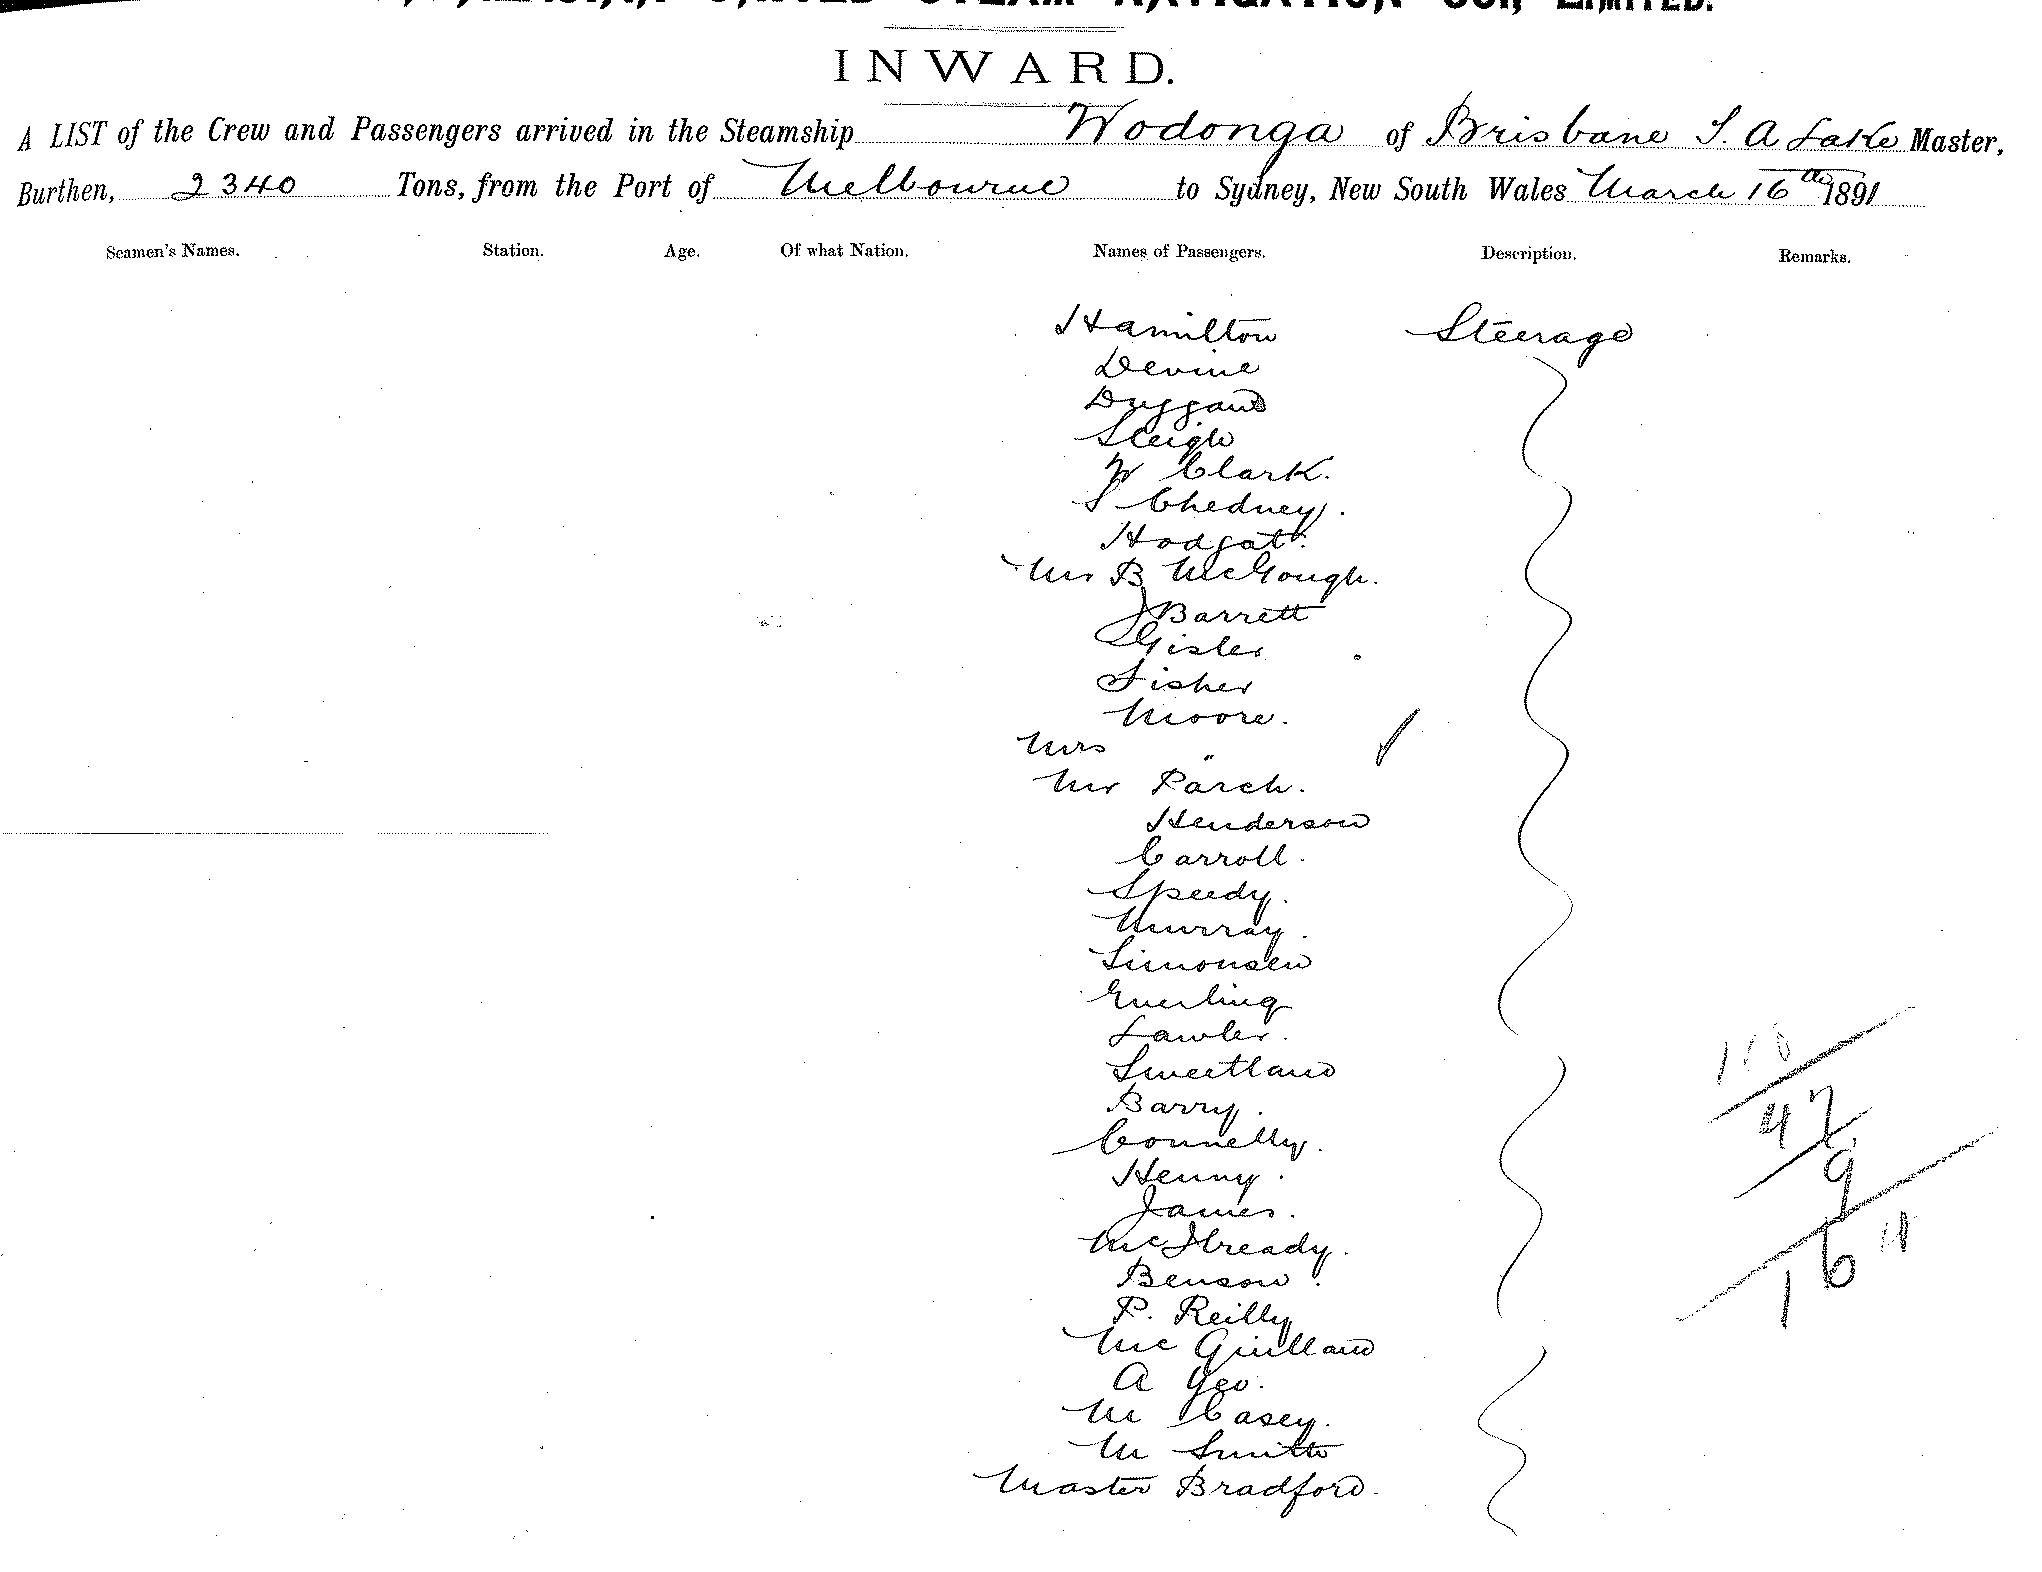 UNITED STEAM NAVIGATION CO., LIMITED.
INWARD.
A LIST of the Crew and Passengers arrived in the Steamship Wodonga of Brisbane S. A Lake Master,
Burthen, 2340 Tons, from the Port of Melbourne to Sydney, New South Wales March 16th 1891
Seamen's Names. Station. Age. Of what Nation. Names of Passengers. Description. Remarks.
Hamilton Steerage
Devine
Duggan
Sleigh
W Clark.
S Chedney.
Hodgat.
Mr B McGough.
J Barrett
Gisler
Fisher
Moore.
Mrs "
Mr Parch.
Henderson
Carroll.
Speedy.
Murray.
Simonsen
Everling
Lawler.
Sweetland
Barry.
Connelly.
Henny.
James.
Benson.
P. Reilly
A Yeo.
M Casey.
M Smith
Master Bradford.
110
47
9
16